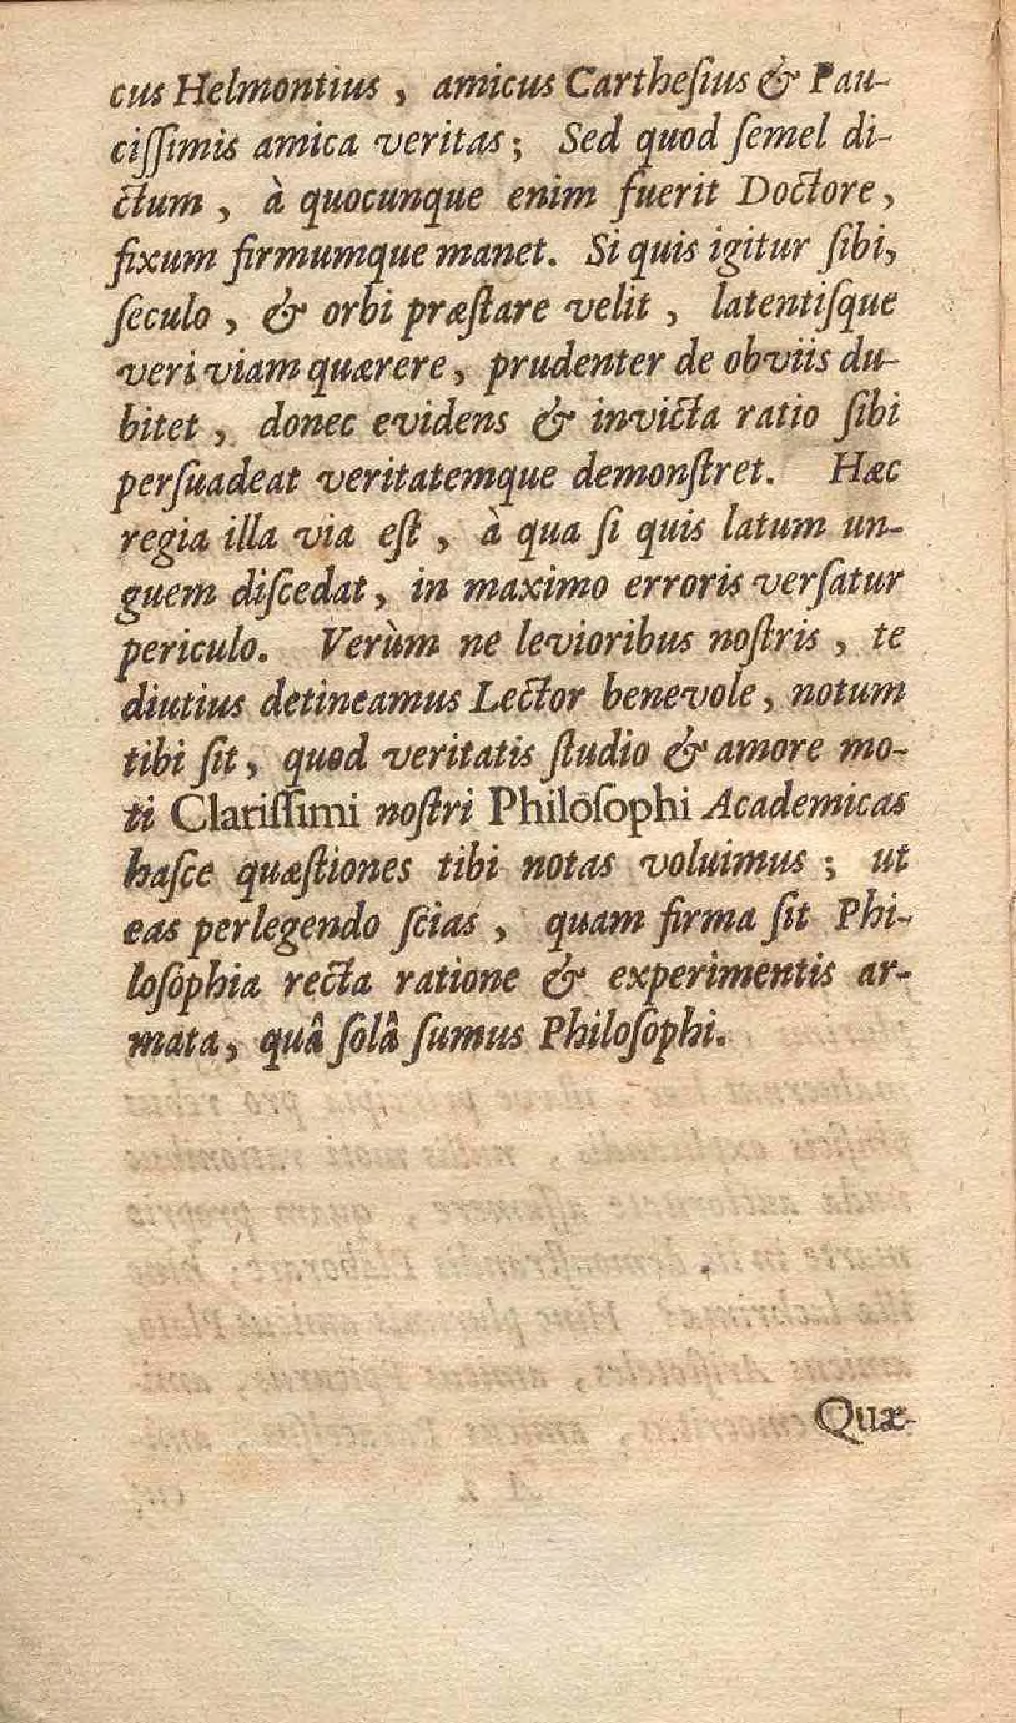 cus Helmontius, amicus Cartheſius & Pau-
ciſſimis amica veritas; Sed quod ſemel di-
ctum, à quocunque enim fuerit Doctore,
fixum firmumque manet. Si quis igitur ſibi,
ſeculo, & orbi præſtare velit, latentiſque
veri viam quærere, prudenter de obviis du-
bitet, donec evidens & invicta ratio ſibi
perſuadeat veritatemque demonſtret. Hæc
regia illa via eſt, à qua ſi quis latum un-
guem diſcedat, in maximo erroris verſatur
periculo. Verùm ne levioribus noſtris, te
diutius detineamus Lector benevole, notum
tibi ſit, quod veritatis ſtudio & amore mo-
ti Clariſſimi noſtri Philoſophi Academicas
haſce quæſtiones tibi notas voluimus; ut
eas perlegendo ſcias, quam firma ſit Phi-
loſophia recta ratione & experimentis ar-
mata, quâ ſolâ ſumus Philoſophi.
Quæ-